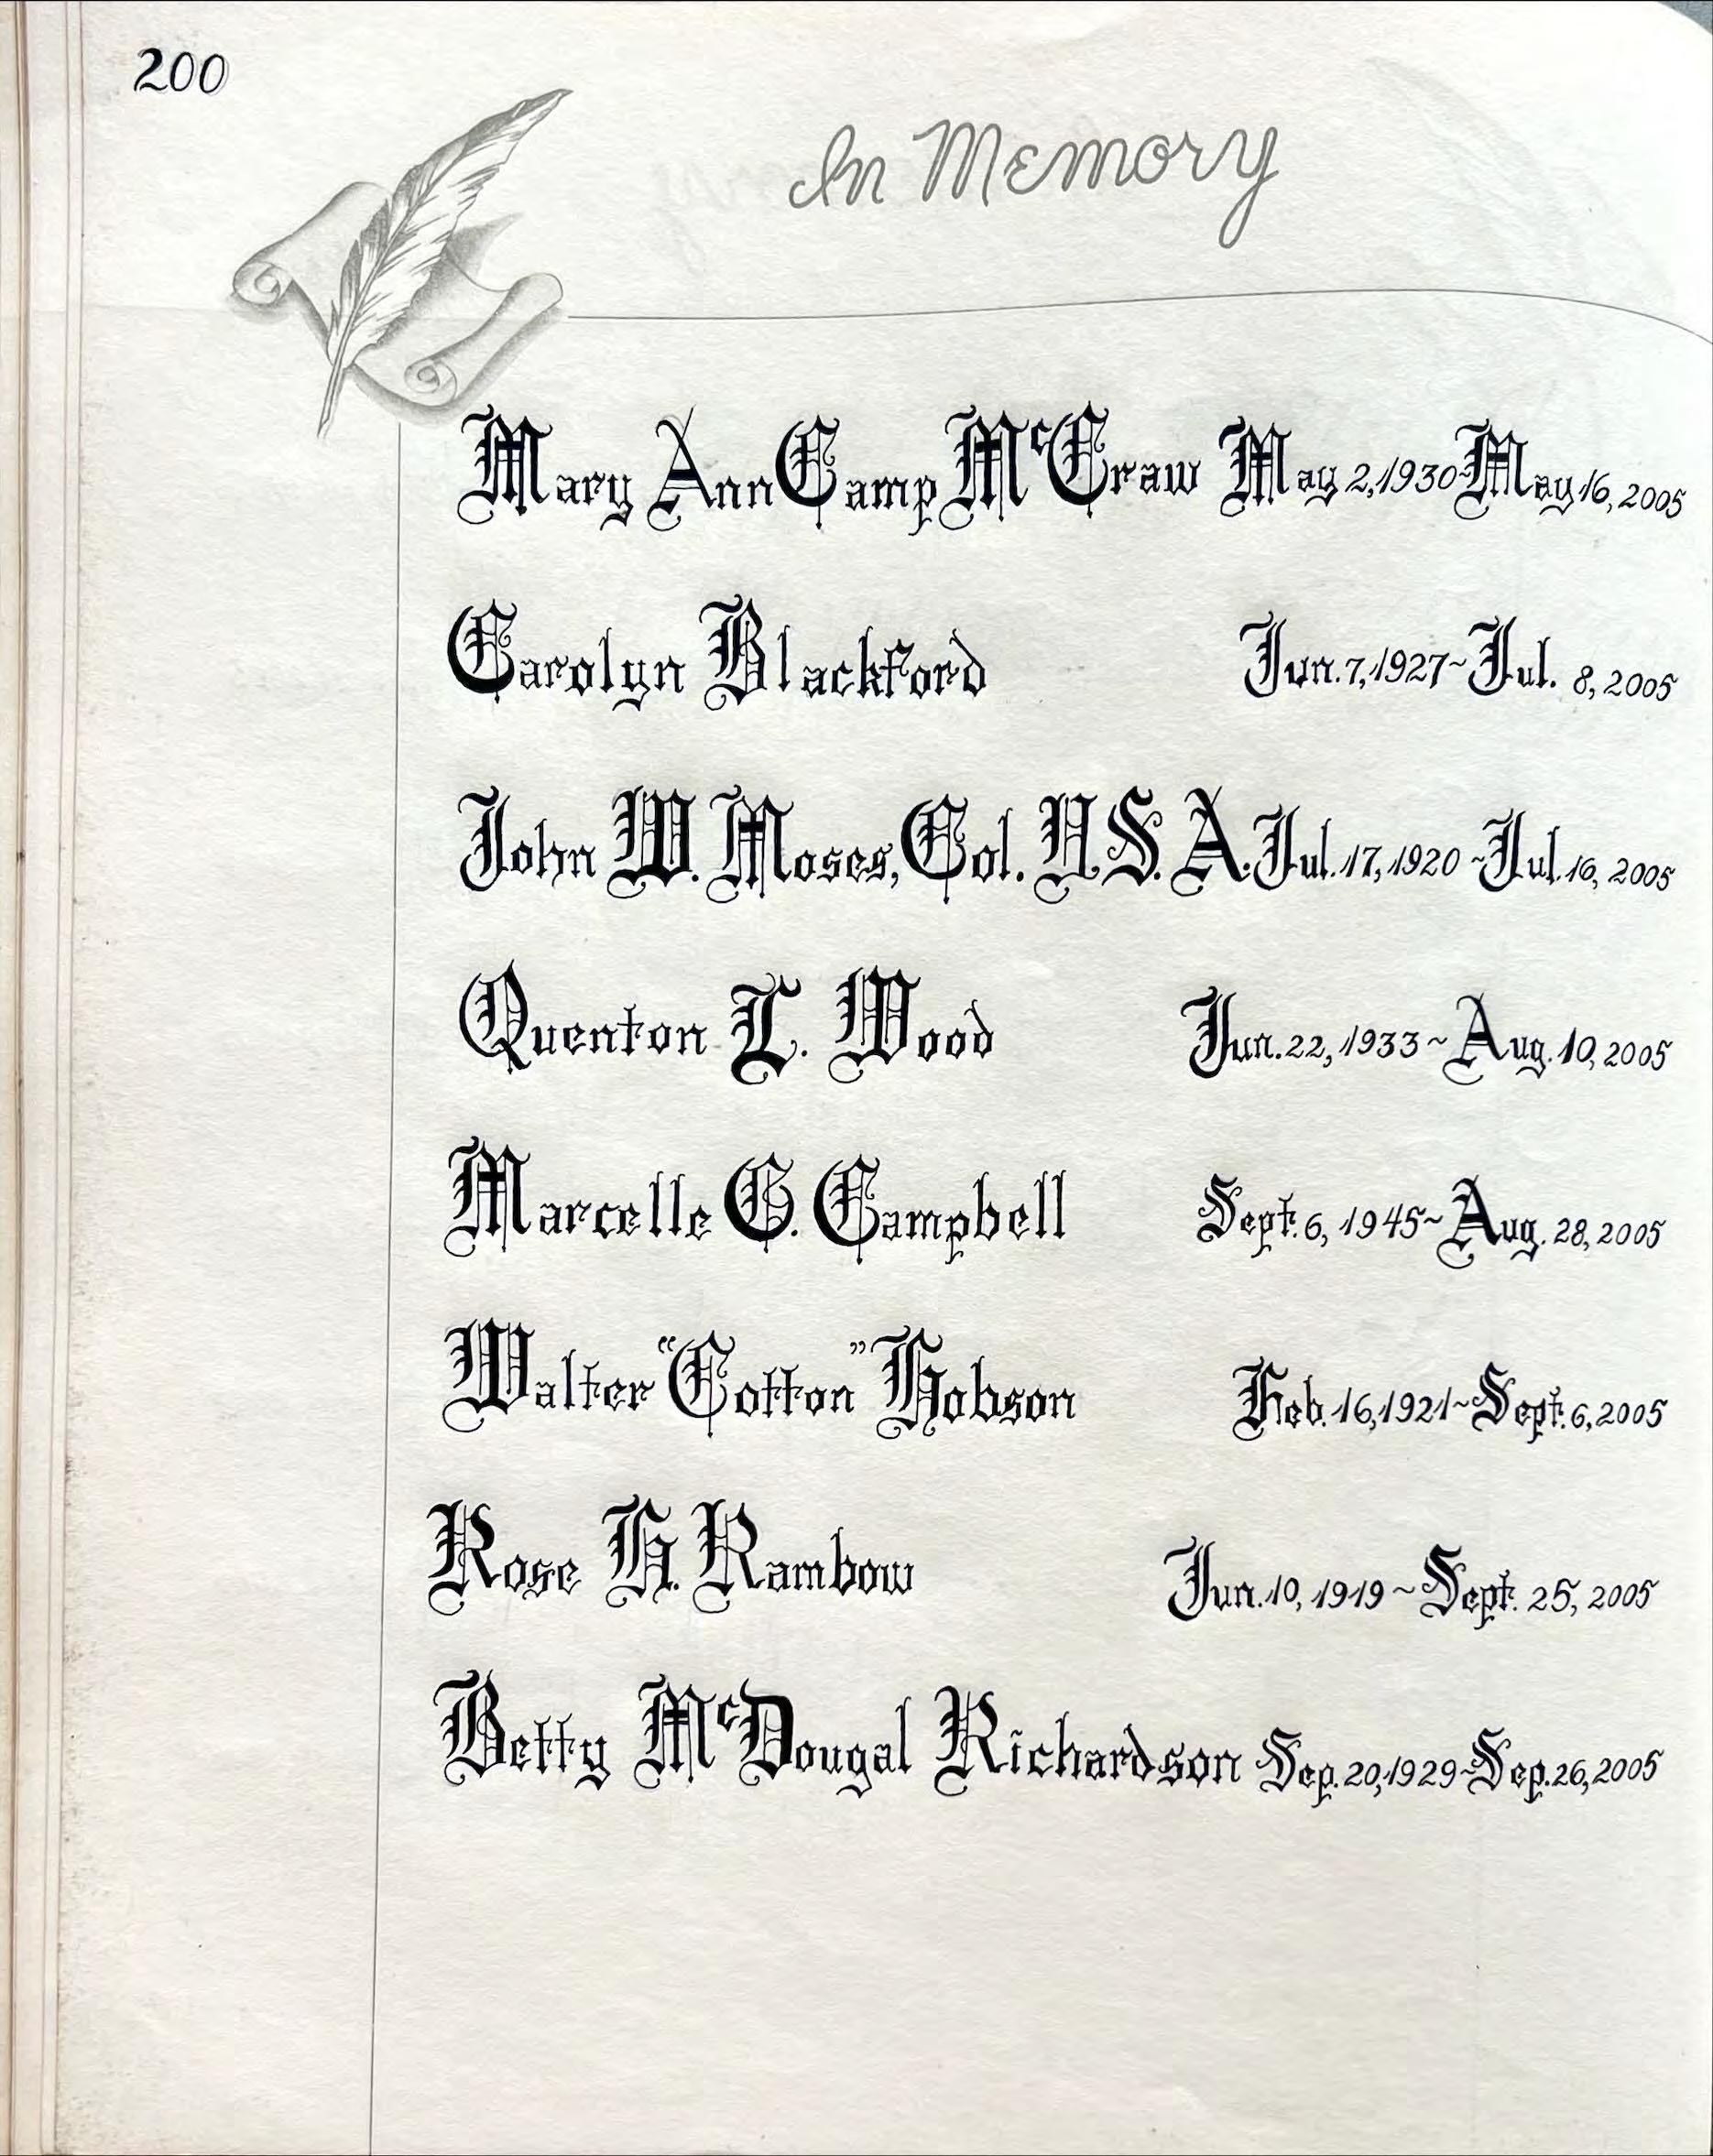 200
In Memory
Mary Ann Camp McCraw May 2, 1930 May 16, 2005
Carolyn Blackford Jun. 7, 1927~Jul. 8, 2005
John W. Moses, Col. U.S.A. Jul. 17, 1920 ~Jul. 16, 2005
Quenton L. Wood Jun. 22, 1933~Aug. 10, 2005
Marcelle G. Campbell Sept. 6, 1945~Aug. 28, 2005
Walter "Cotton" Hobson Feb. 16, 1921~Sept. 6, 2005
Rose H. Rambow Jun. 10, 1919~Sept. 25, 2005
Betty McDougal Richardson Sep. 20, 1929~Sep. 26, 2005